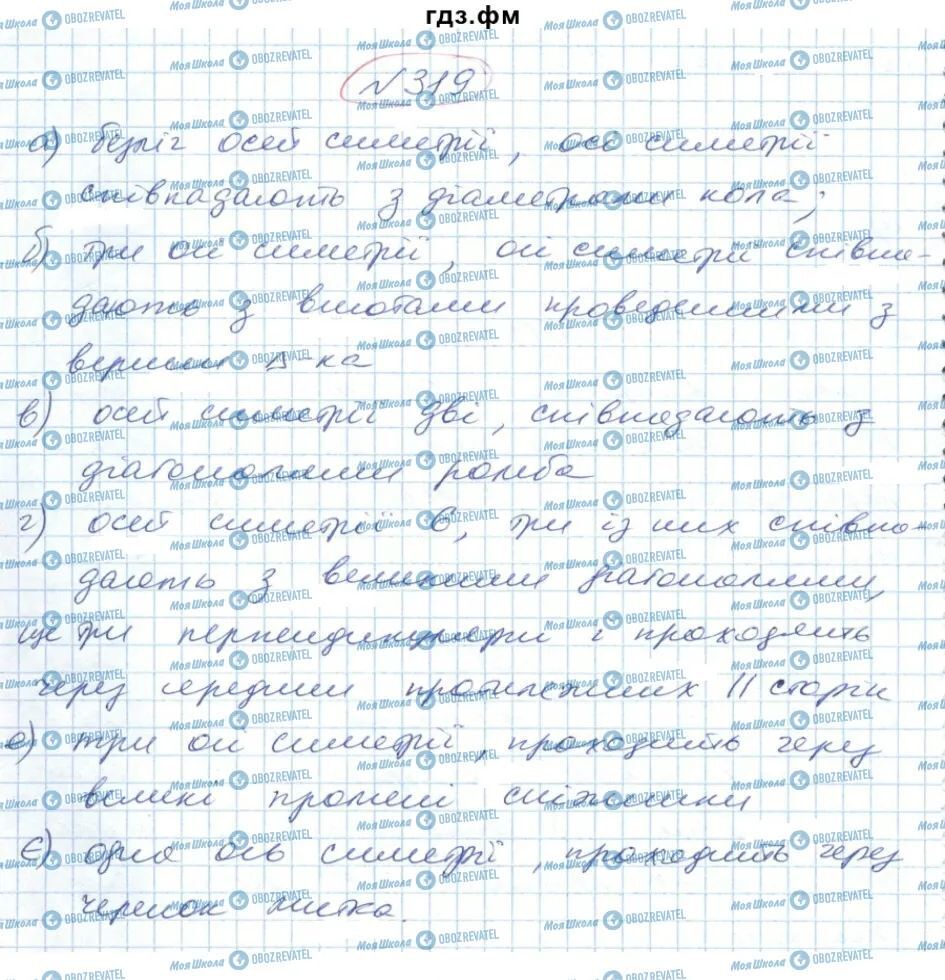 гдз.фм
№ 319
а) безліч осей симетрії, осі симетрії
співпадають з діаметрами кола;
б) три осі симетрії, осі симетрії співпа-
дають з висотами проведеними з
вершин Δ-ка
в) осей симетрії дві, співпадають з
діагоналями ромба
г) осей симетрії 6, три із них співпа-
дають з великими діагоналями,
ще три перпендикулярні і проходять
через середини протилежних || сторін
е) три осі симетрії, проходять через
великі промені сніжинки
є) одна ось симетрії, проходить через
черешок листка.
МояШкола OBOZREVATEL